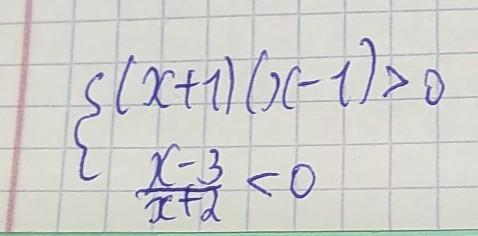 {(x+1)(x-1)>0
x-3
x+2 <0